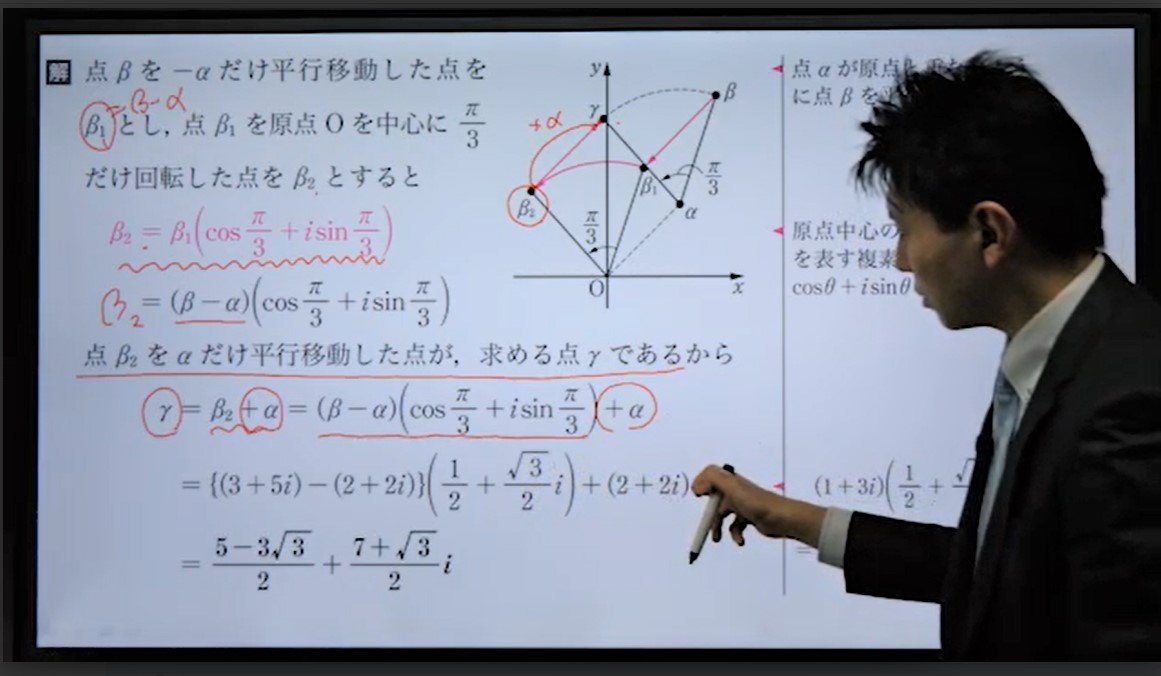 解 点 β を −α だけ平行移動した点を
= β-α
β₁ とし, 点 β₁ を原点 O を中心に π/3
だけ回転した点を β₂ とすると
β₂ = β₁(cos π/3 + i sin π/3)
β₂ = (β − α)(cos π/3 + i sin π/3)
点 β₂ を α だけ平行移動した点が, 求める点 γ であるから
γ = β₂ + α = (β − α)(cos π/3 + i sin π/3) + α
= {(3 + 5i) − (2 + 2i)}(1/2 + √3/2 i) + (2 + 2i)
= (5 − 3√3)/2 + (7 + √3)/2 i
y
γ
β
+α
β₁
π/3
β₂
π/3
α
O
x
点 α が原点
に点 β を
原点中心の
を表す複素
cosθ + i sinθ
(1 + 3i)(1/2 + √
=